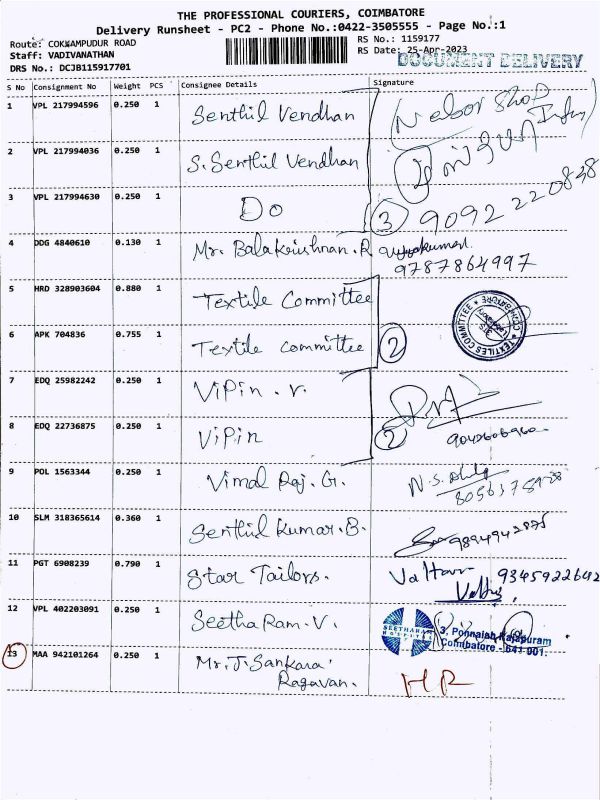 THE PROFESSIONAL COURIERS, COIMBATORE
Delivery Runsheet - PC2 - Phone No.:0422-3505555 - Page No.:1
Route: COKKAMPUDUR ROAD
RS No.: 1159177
Staff: VADIVANATHAN
RS Date: 25-Apr-2023
DRS No.: DCJB115917701
DOCUMENT DELIVERY
S No Consignment No Weight PCS Consignee Details Signature
1 VPL 217994596 0.250 1 Senthil Vendhan (Nebor Shop
2 VPL 217994036 0.250 1 S. Senthil Vendhan
3 VPL 217994630 0.250 1 Do 3 9092 220838
4 DDG 4840610 0.130 1 Mr. Balakrishnan. R
9787864997
5 HRD 328903604 0.880 1 Textile Committee
6 APK 704836 0.755 1 Textile Committee 2
TEXTILES COMMITTEE COIMBATORE
7 EDQ 25982242 0.250 1 ViPin . V.
8 EDQ 22736875 0.250 1 ViPin 2
9 POL 1563344 0.250 1 Vimal Raj. G.
10 SLM 318365614 0.360 1 Senthil Kumar. B.
9894942875
11 PGT 6908239 0.790 1 Star Tailors. 9345922642
12 VPL 402203091 0.250 1 Seetha Ram. V.
SEETHARAM HOSPITAL
3, Ponnaiah Rajapuram
Coimbatore - 641 001.
13 MAA 942101264 0.250 1 Mr. J. Sankara
Ragavan. HR